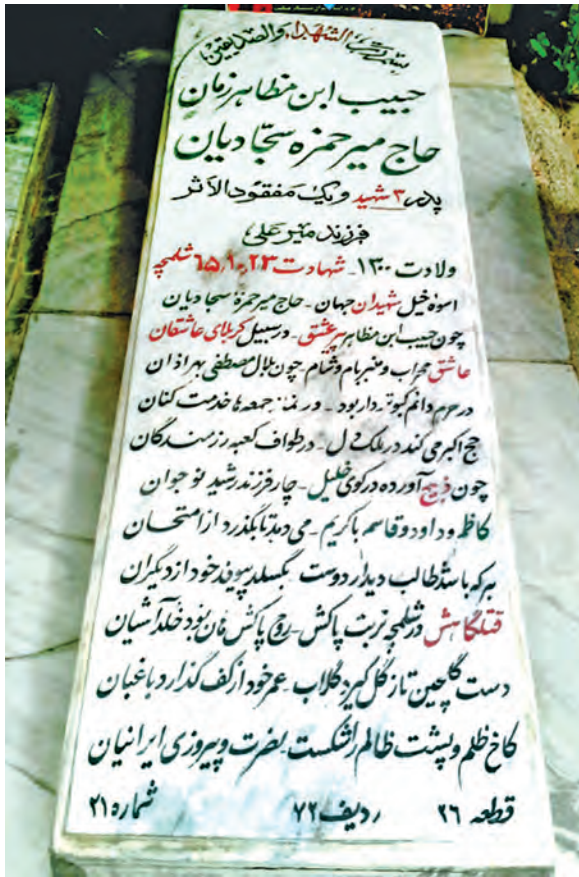 بسم رب الشهداء والصدیقین
حبیب ابن مظاهر زمان
حاج میر حمزه سجادیان
پدر ۳ شهید و یک مفقود الاثر
فرزند میر علی
ولادت ۱۳۰۰ - شهادت ۶۵،۱۰،۲۳ شلمچه
اسوه خیل شهیدان جهان - حاج میر حمزه سجادیان
چون حبیب ابن مظاهر پیر عشق - در سبیل کربلای عاشقان
عاشق محراب و منبر بام و شام - چون بلال مصطفی بهر اذان
در حرم دائم کبوتر وار بود - در نماز جمعه ها خدمت کنان
حج اکبر می کند در ملک دل - در طواف کعبه رزمندگان
چون ذبیح آورده در کوی خلیل - چار فرزند رشید نوجوان
کاظم و داود و قاسم با کریم - می دهد تا بگذرد از امتحان
هر که باشد طالب دیدار دوست - بگسلد پیوند خود از دیگران
قتلگاهش در شلمچه تربت پاکش - روح پاکش بود خلد آشیان
دست گلچین تا ز گل گیرد گلاب - عمر خود از کف گذارد باغبان
کاخ ظلم و پشت ظالم را شکست - نصرت و پیروزی ایرانیان
قطعه ۲۶ ردیف ۷۲ شماره ۲۱